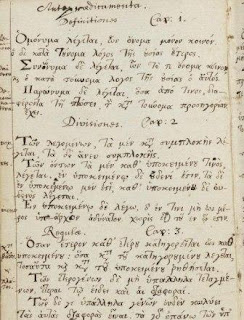 Antepraedicamenta.
Definitiones Cap. 1.
Ὁμώνυμα λέγεται, ὧν ὄνομα μόνον κοινὸν
ὁ δὲ κατὰ τοὔνομα λόγος τῆς οὐσίας ἕτερος.
Συνώνυμα δὲ λέγεται, ὧν τό τε ὄνομα κοινὸν
ὁ κατὰ τοὔνομα λόγος τῆς οὐσίας ὁ αὐτός.
Παρώνυμα δὲ λέγεται, ὅσα ἀπό τινος, δια-
φέροντα τῇ πτώσει, τὴν κατὰ τοὔνομα προσηγορίαν
ἔχει.
Divisiones. Cap. 2
Τῶν λεγομένων, τὰ μὲν κατὰ συμπλοκὴν λέ-
γεται, τὰ δὲ ἄνευ συμπλοκῆς.
Τῶν ὄντων τὰ μὲν καθ' ὑποκειμένου τινὸς
λέγεται, ἐν ὑποκειμένῳ δὲ οὐδενί ἐστι, τὰ δὲ
ἐν ὑποκειμένῳ μέν ἐστι, καθ' ὑποκειμένου δὲ οὐ-
δενὸς λέγεται.
Ἐν ὑποκειμένῳ δὲ λέγω, ὃ ἔν τινι μὴ ὡς μέ-
ρος ὑπάρχον ἀδύνατον χωρὶς εἶναι τοῦ ἐν ᾧ ἐστιν
Regulae. Cap. 3.
Ὅταν ἕτερον καθ' ἑτέρου κατηγορῆται ὡς καθ'
ὑποκειμένου, ὅσα κατὰ τοῦ κατηγορουμένου λέγεται,
τοσαῦτα καὶ κατὰ τοῦ ὑποκειμένου ῥηθήσεται.
Τῶν ἑτερογενῶν καὶ μὴ ὑπάλληλα τεταγμέ-
νων, ἕτεραι τῷ εἴδει καὶ αἱ διαφοραί.
Τῶν δέ γε ὑπάλληλα γενῶν οὐδὲν κωλύει
τὰς αὐτὰς διαφορὰς εἶναι